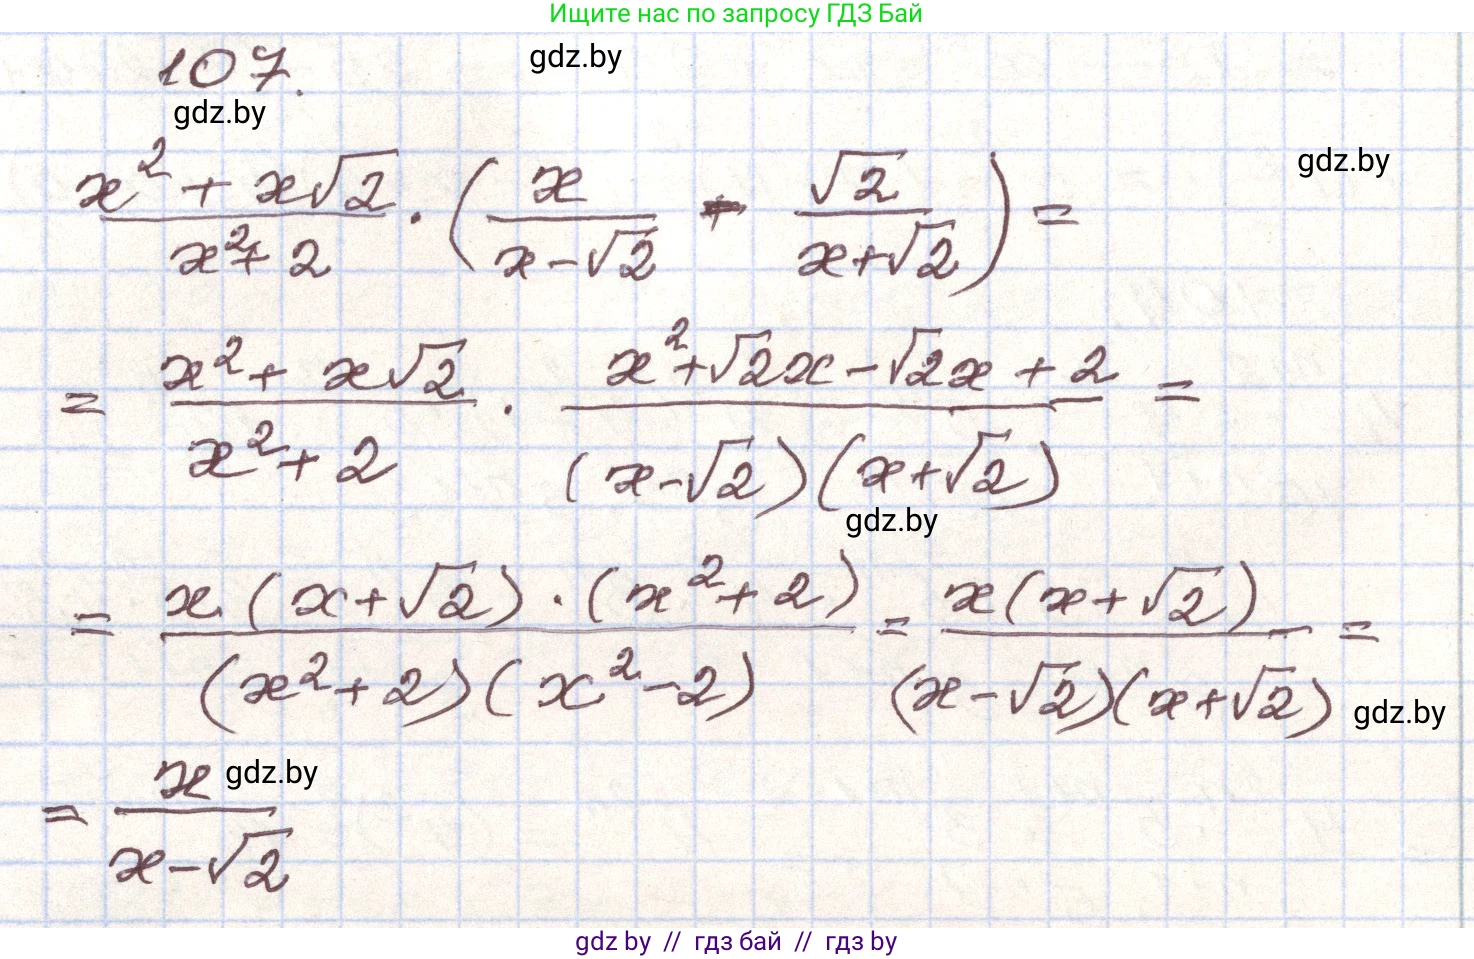 Ищите нас по запросу ГДЗ Бай
107.
gdz.by
gdz.by
gdz.by
(x² + x√2)/(x² + 2) · (x/(x − √2) − √2/(x + √2)) =
= (x² + x√2)/(x² + 2) · (x² + √2x − √2x + 2)/((x − √2)(x + √2)) =
gdz.by
= (x(x + √2) · (x² + 2))/((x² + 2)(x² − 2)) = (x(x + √2))/((x − √2)(x + √2)) =
gdz.by
= x/(x − √2)
gdz.by
gdz by // гдз бай // гдз by